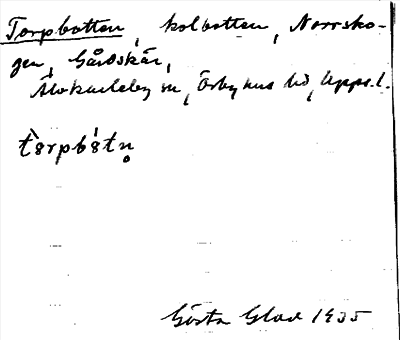 Torpbotten, kolbotten, Norrsko-
gen, Gårdskär,
Älvkarleby sn, Örbyhus hd, Upps. l.
tòrpbótn̥
Gösta Glad 1935